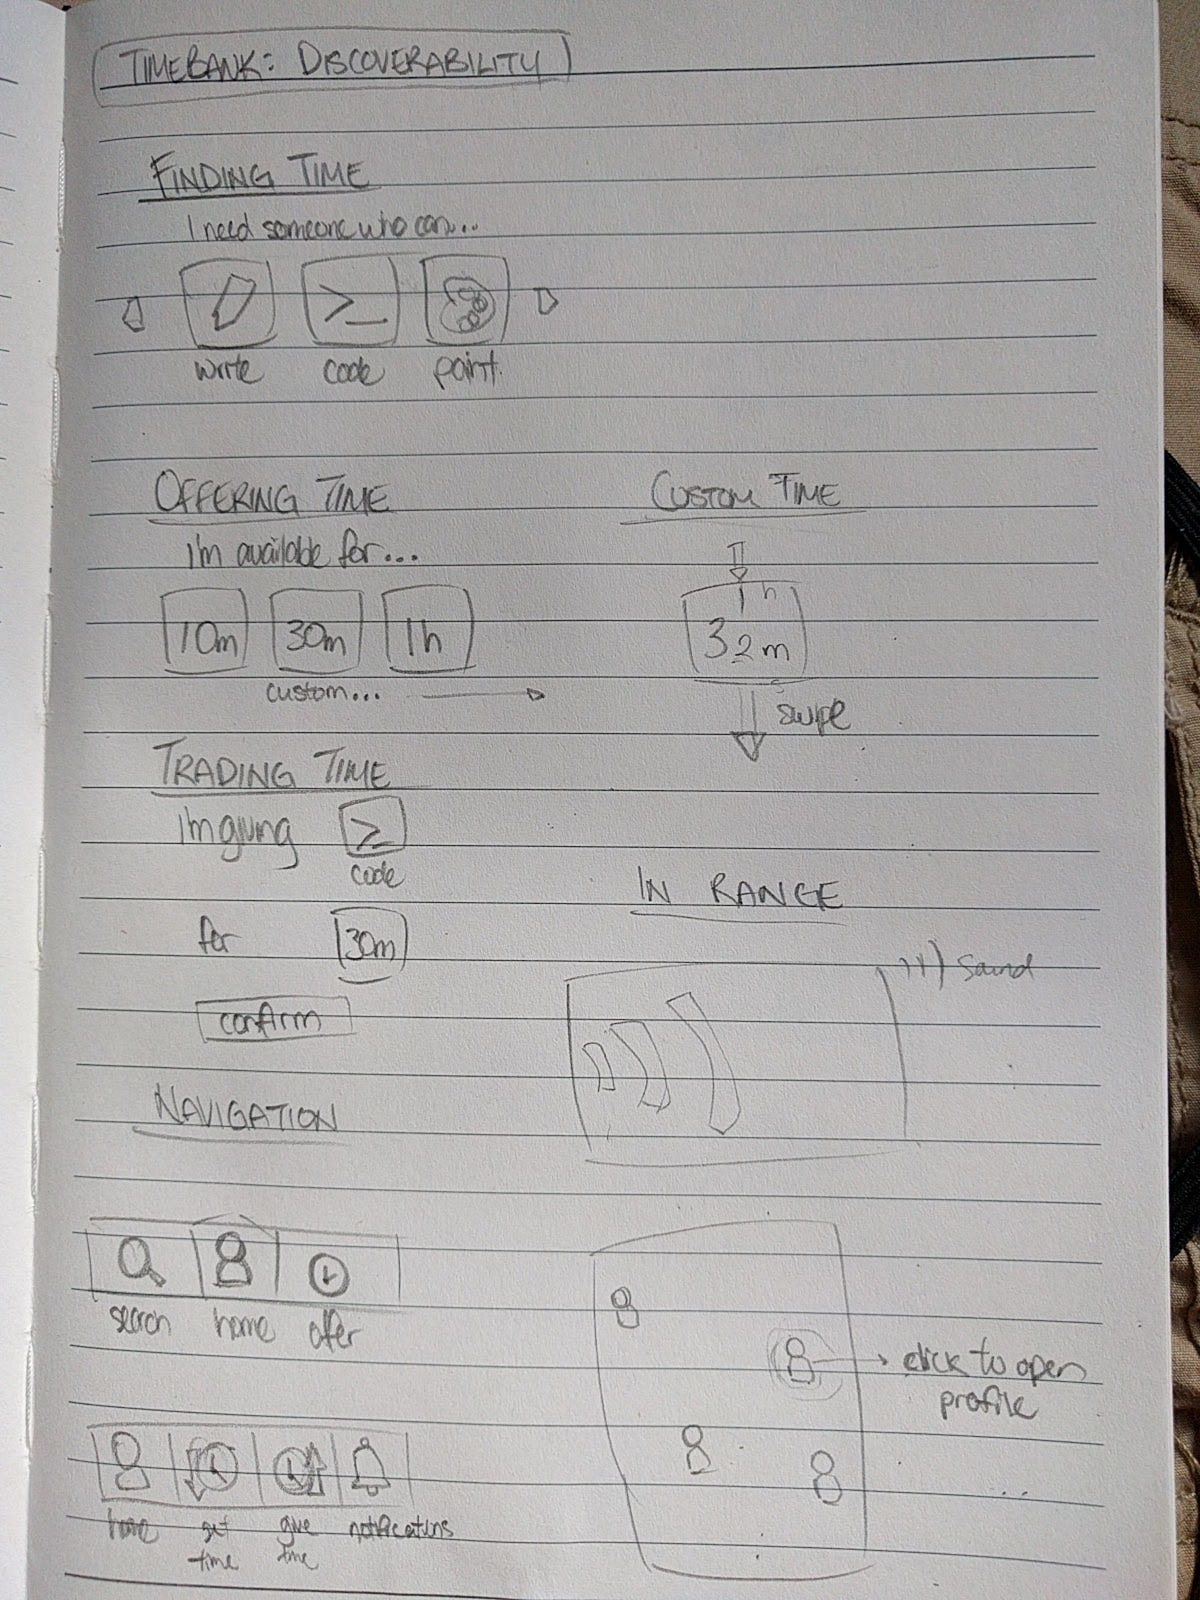 TIMEBANK: DISCOVERABILITY
FINDING TIME
I need someone who can...
write code paint.
OFFERING TIME
I'm available for...
10m 30m 1h
custom...
CUSTOM TIME
1h
32m
swipe
TRADING TIME
I'm giving >_
code
for 30m
confirm
IN RANGE
sound
NAVIGATION
search home offer
click to open
profile
home get time give time notifications